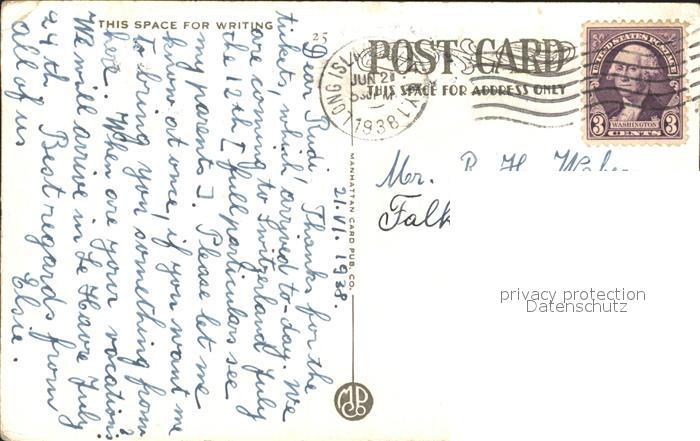 THIS SPACE FOR WRITING
25
Dear Rudi, Thanks for the
ticket, which arrived to-day. We
are coming to Switzerland July
the 12th [full particulars see
my parents]. Please let me
know at once, if you want me
to bring you something from
here. When are your vacations?
We will arrive in Le Havre July
24th. Best regards from
all of us Elsie.
21.VI.1938.
MANHATTAN CARD PUB. CO.
POST CARD
THIS SPACE FOR ADDRESS ONLY
LONG ISLAND
JUN 21
530PM
1938
N.Y.
UNITED STATES POSTAGE
WASHINGTON
3 CENTS 3
Mr. R. H.
Falk
privacy protection
Datenschutz